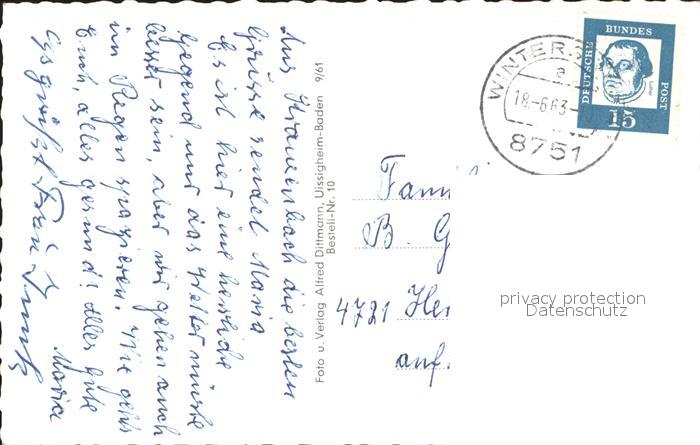 Aus Krausenbach die besten
Grüsse sendet Maria
Es ist hier eine herrliche
Gegend nur das Wetter müsste
besser sein, aber wir gehen auch
im Regen spazieren. Wie gehts
Euch, alles gesund? Alles Gute
Maria
Es grüßt Frau
Foto u. Verlag Alfred Dittmann, Uissigheim-Baden 9/61
Bestell-Nr. 10
WINTER
a
18.-6.63-
8751
DEUTSCHE
BUNDES
POST
Luther
15
Fami
B. G
4721 He
auf.
privacy protection
Datenschutz